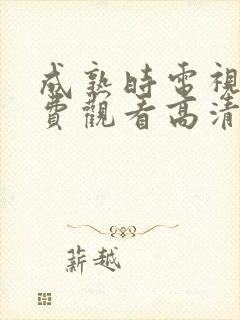 成熟時電視
費觀看高清
薪越